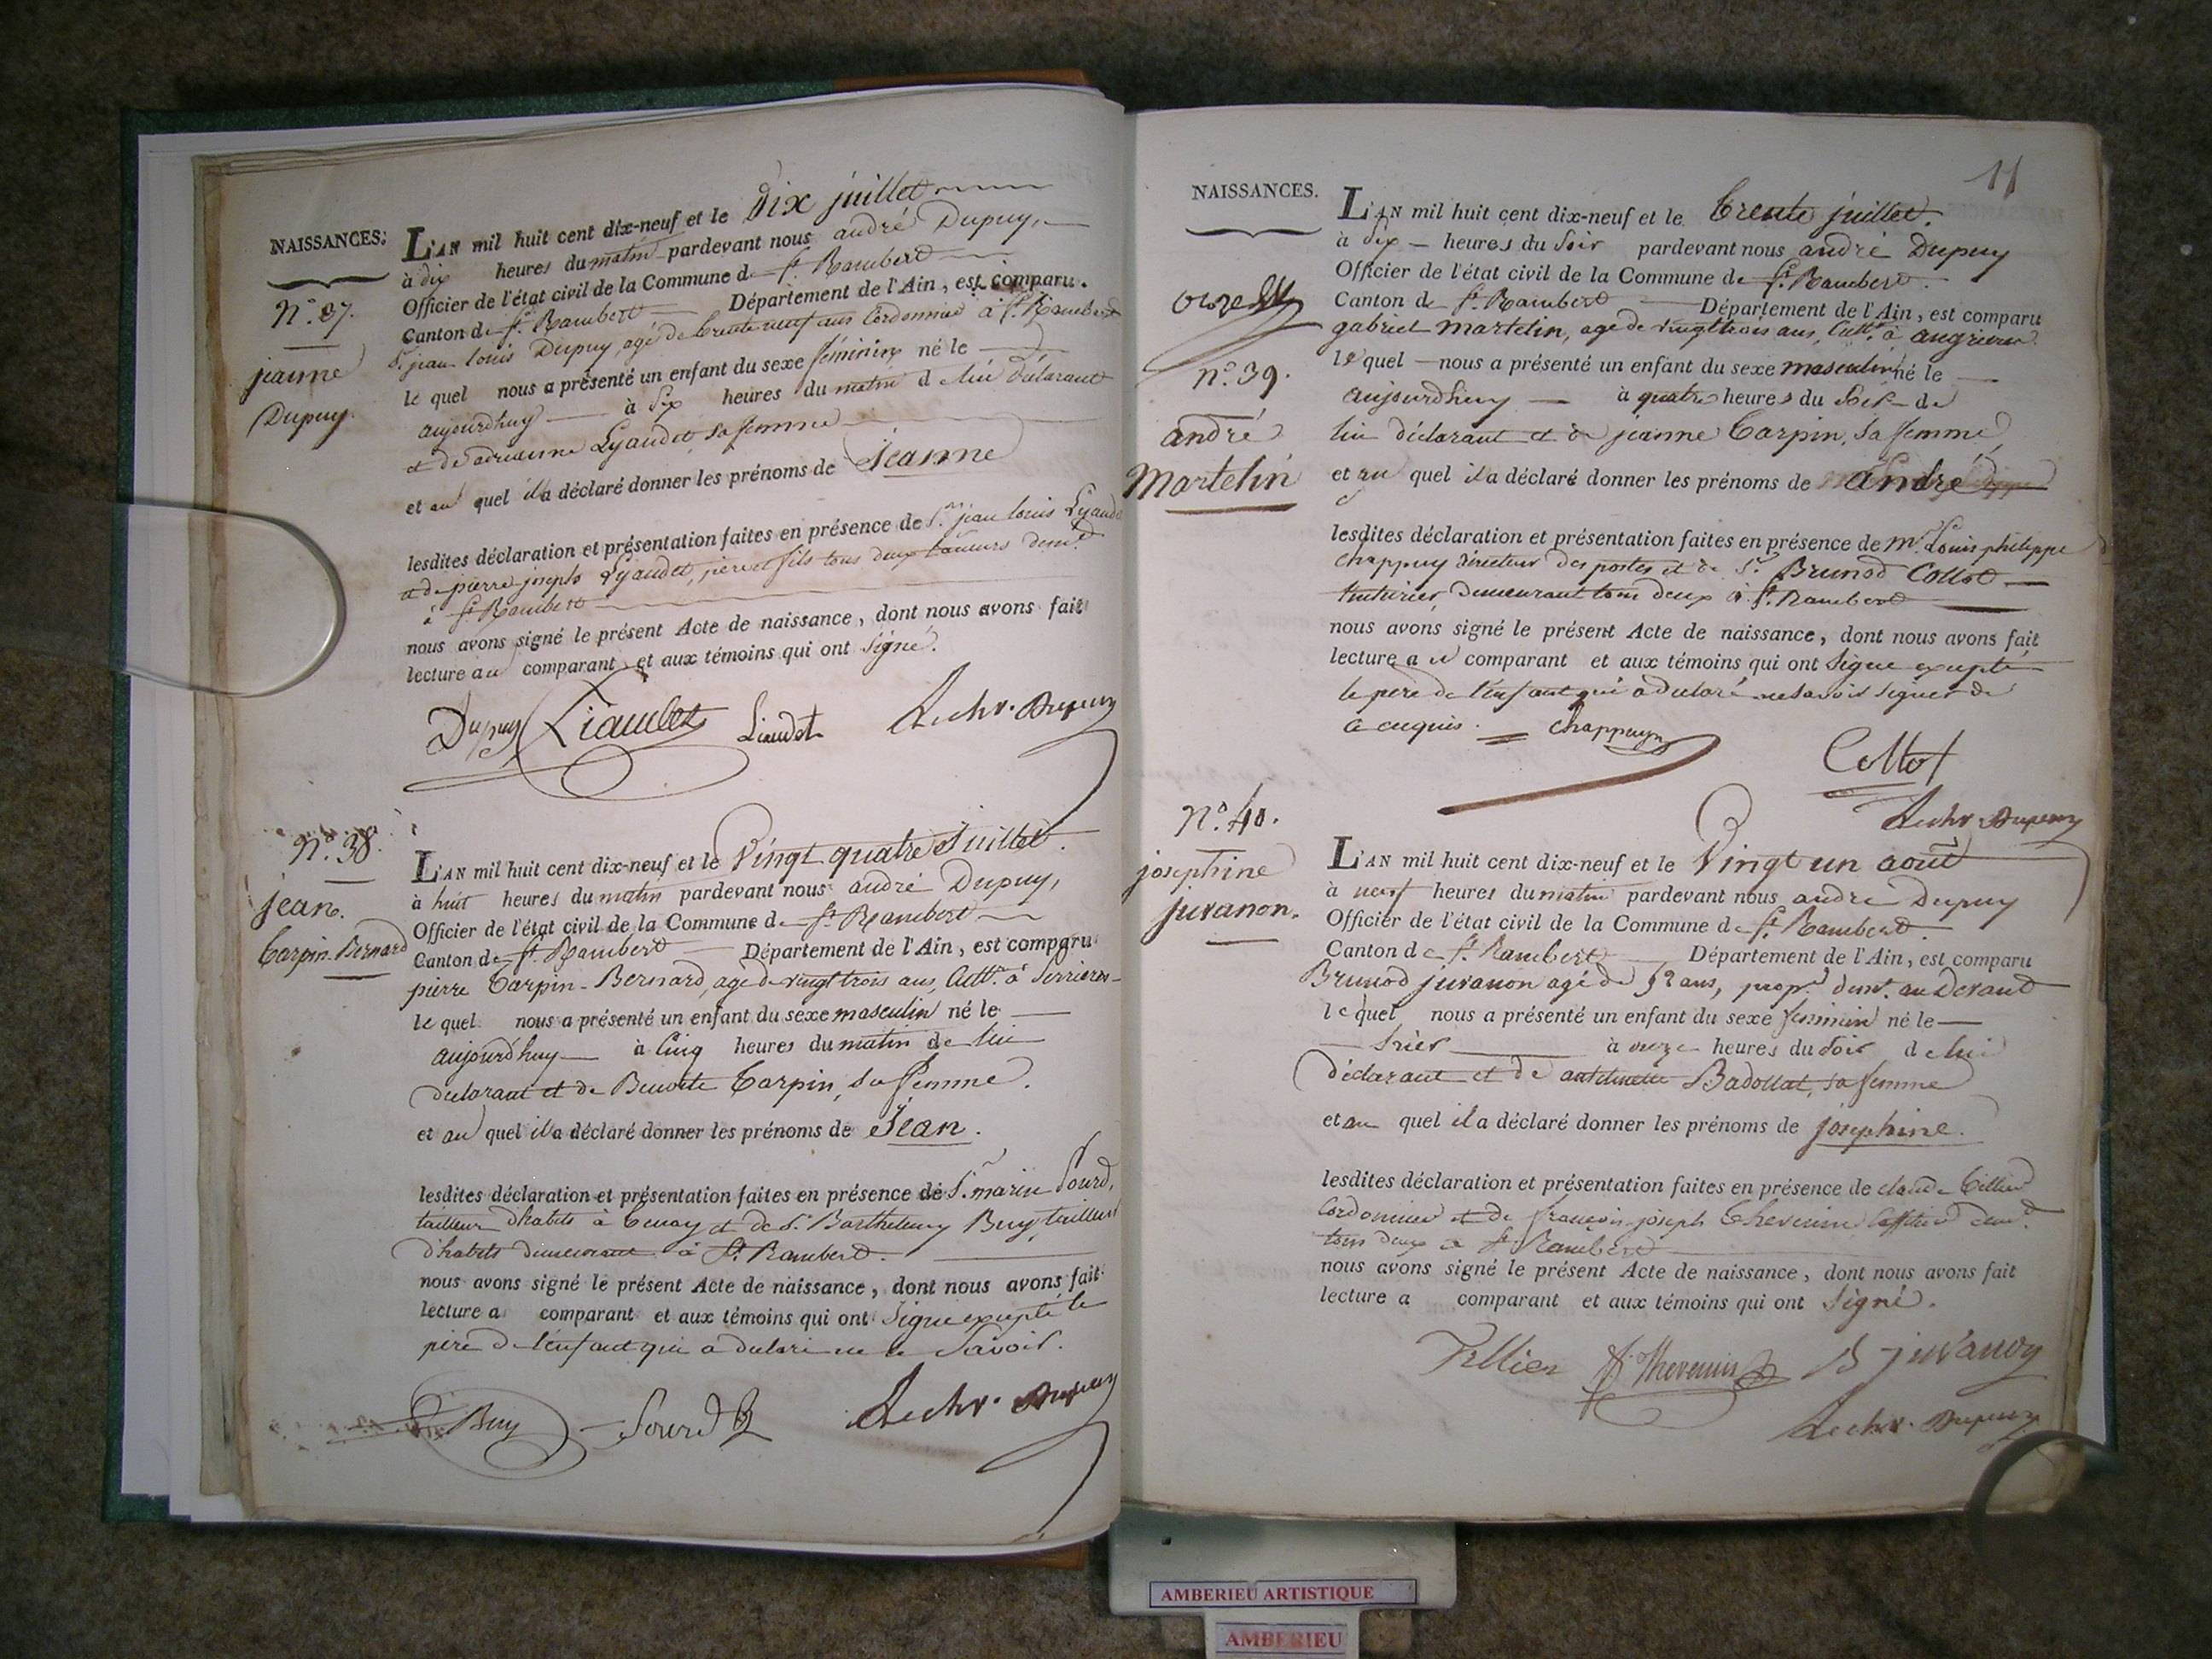 NAISSANCES.
N.º 37.
jeanne
Dupuy.
L'AN mil huit cent dix-neuf et le Dix juillet
à dix heures du matin pardevant nous andré Dupuy,
Officier de l'état civil de la Commune de St. Rambert
Canton de St. Rambert Département de l'Ain, est comparu
Sr. jean louis Dupuy, agé de trente neuf ans Cordonnier à St. Rambert
le quel nous a présenté un enfant du sexe féminin né le
aujourdhuy à Six heures du matin de lui déclarant
et de adrianne Lyaudet sa femme
et au quel il a déclaré donner les prénoms de Jeanne
lesdites déclaration et présentation faites en présence de Sr. jean louis Lyaudet
et de pierre joseph Lyaudet, père et fils tous deux demt.
à St. Rambert
nous avons signé le présent Acte de naissance, dont nous avons fait
lecture au comparant et aux témoins qui ont Signé.
Dupuy Liaudet Liaudet Dupuy
N.º 38.
jean.
Carpin-Bernard
L'AN mil huit cent dix-neuf et le Vingt quatre Juillet.
à huit heures du matin pardevant nous andré Dupuy,
Officier de l'état civil de la Commune de St. Rambert
Canton de St. Rambert Département de l'Ain, est comparu
pierre Carpin-Bernard, agé de vingt trois ans, Cultr. à Serrieres
le quel nous a présenté un enfant du sexe masculin né le
aujourd'huy à Cinq heures du matin de lui
déclarant et de Benoite Carpin, sa femme.
et au quel il a déclaré donner les prénoms de Jean.
lesdites déclaration et présentation faites en présence de Sr. marin Sourd,
tailleur d'habits à Tenay et de Sr. Barthelemy Buy, tailleur
d'habits demeurant à St. Rambert.
nous avons signé le présent Acte de naissance, dont nous avons fait
lecture a comparant et aux témoins qui ont Signé excepté le
père de l'enfant qui a déclaré ne le Savoir.
Buy Sourd Dupuy
11
NAISSANCES.
n.º 39.
andré
Martelin
L'AN mil huit cent dix-neuf et le trente juillet.
à Six heures du Soir pardevant nous andré Dupuy
Officier de l'état civil de la Commune de St. Rambert.
Canton de St. Rambert Département de l'Ain, est comparu
gabriel martelin, agé de vingt trois ans, Cultr. à angrieres
le quel nous a présenté un enfant du sexe masculin né le
aujourdhuy à quatre heures du Soir de
lui déclarant et de jeanne Carpin, sa femme,
et au quel il a déclaré donner les prénoms de andré
lesdites déclaration et présentation faites en présence de mr. Louis philippe
chappuy directeur des postes et de Sr. Brunod Collot
teinturier, demeurant tous deux à St. Rambert
nous avons signé le présent Acte de naissance, dont nous avons fait
lecture a comparant et aux témoins qui ont Signé excepté
le père de l'enfant qui a déclaré ne savoir signer de
ce enquis. chappuy
Collot
Dupuy
N.º 40.
josephine
juvanon.
L'AN mil huit cent dix-neuf et le Vingt un août
à neuf heures du matin pardevant nous andré Dupuy
Officier de l'état civil de la Commune de St. Rambert.
Canton de St. Rambert Département de l'Ain, est comparu
Brunod juvanon agé de 52 ans, propr. demt. au Devant
le quel nous a présenté un enfant du sexe feminin né le
hier à onze heures du Soir de lui
déclarant et de antoinette Badollat, sa femme
et au quel il a déclaré donner les prénoms de josephine.
lesdites déclaration et présentation faites en présence de claude Tillier
Cordonnier et de françois joseph thevenin Caffetier demt.
tous deux à St. Rambert
nous avons signé le présent Acte de naissance, dont nous avons fait
lecture a comparant et aux témoins qui ont Signé.
Tillier Thevenin B juvanon
Dupuy
AMBERIEU ARTISTIQUE
AMBERIEU